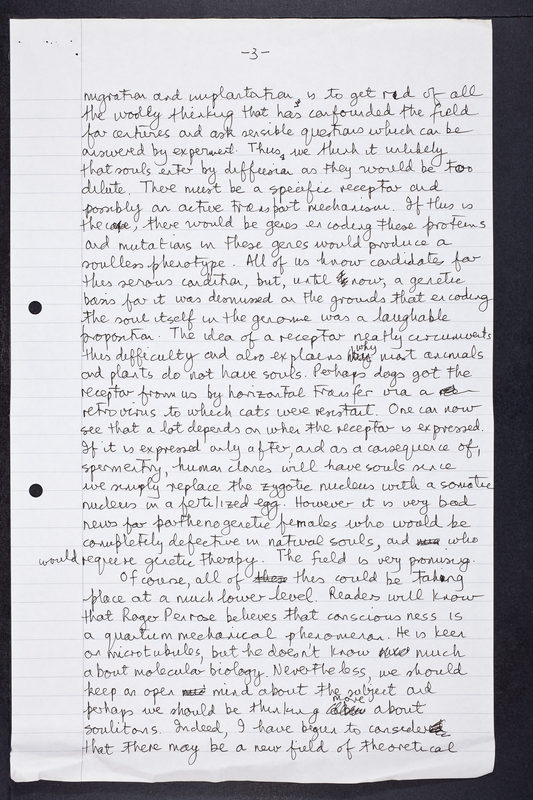 -3-
migration and implantation, is to get rid of all
the woolly thinking that has confounded the field
for centuries and ask sensible questions which can be
answered by experiment. Thus, we think it unlikely
that souls enter by diffusion as they would be too
dilute. There must be a specific receptor and
possibly an active transport mechanism. If this is
the case, there would be genes encoding these proteins
and mutations in these genes would produce a
soulless phenotype. All of us know candidates for
this serious condition, but, until now, a genetic
basis for it was dismissed on the grounds that encoding
the soul itself in the genome was a laughable
proposition. The idea of a receptor neatly circumvents
this difficulty and also explains why most animals
and plants do not have souls. Perhaps dogs got the
receptor from us by horizontal transfer via a
retrovirus to which cats were resistant. One can now
see that a lot depends on when the receptor is expressed.
If it is expressed only after, and as a consequence of,
spermentry, human clones will have souls since
we simply replace the zygotic nucleus with a somatic
nucleus in a fertilized egg. However it is very bad
news for parthenogenetic females who would be
completely defective in natural souls, and who
would require genetic therapy. The field is very promising.
Of course, all of this could be taking
place at a much lower level. Readers will know
that Roger Penrose believes that consciousness is
a quantum mechanical phenomenon. He is keen
on microtubules, but he doesn't know much
about molecular biology. Nevertheless, we should
keep an open mind about the subject and
perhaps we should be thinking more about
soulitons. Indeed, I have begun to consider
that there may be a new field of theoretical